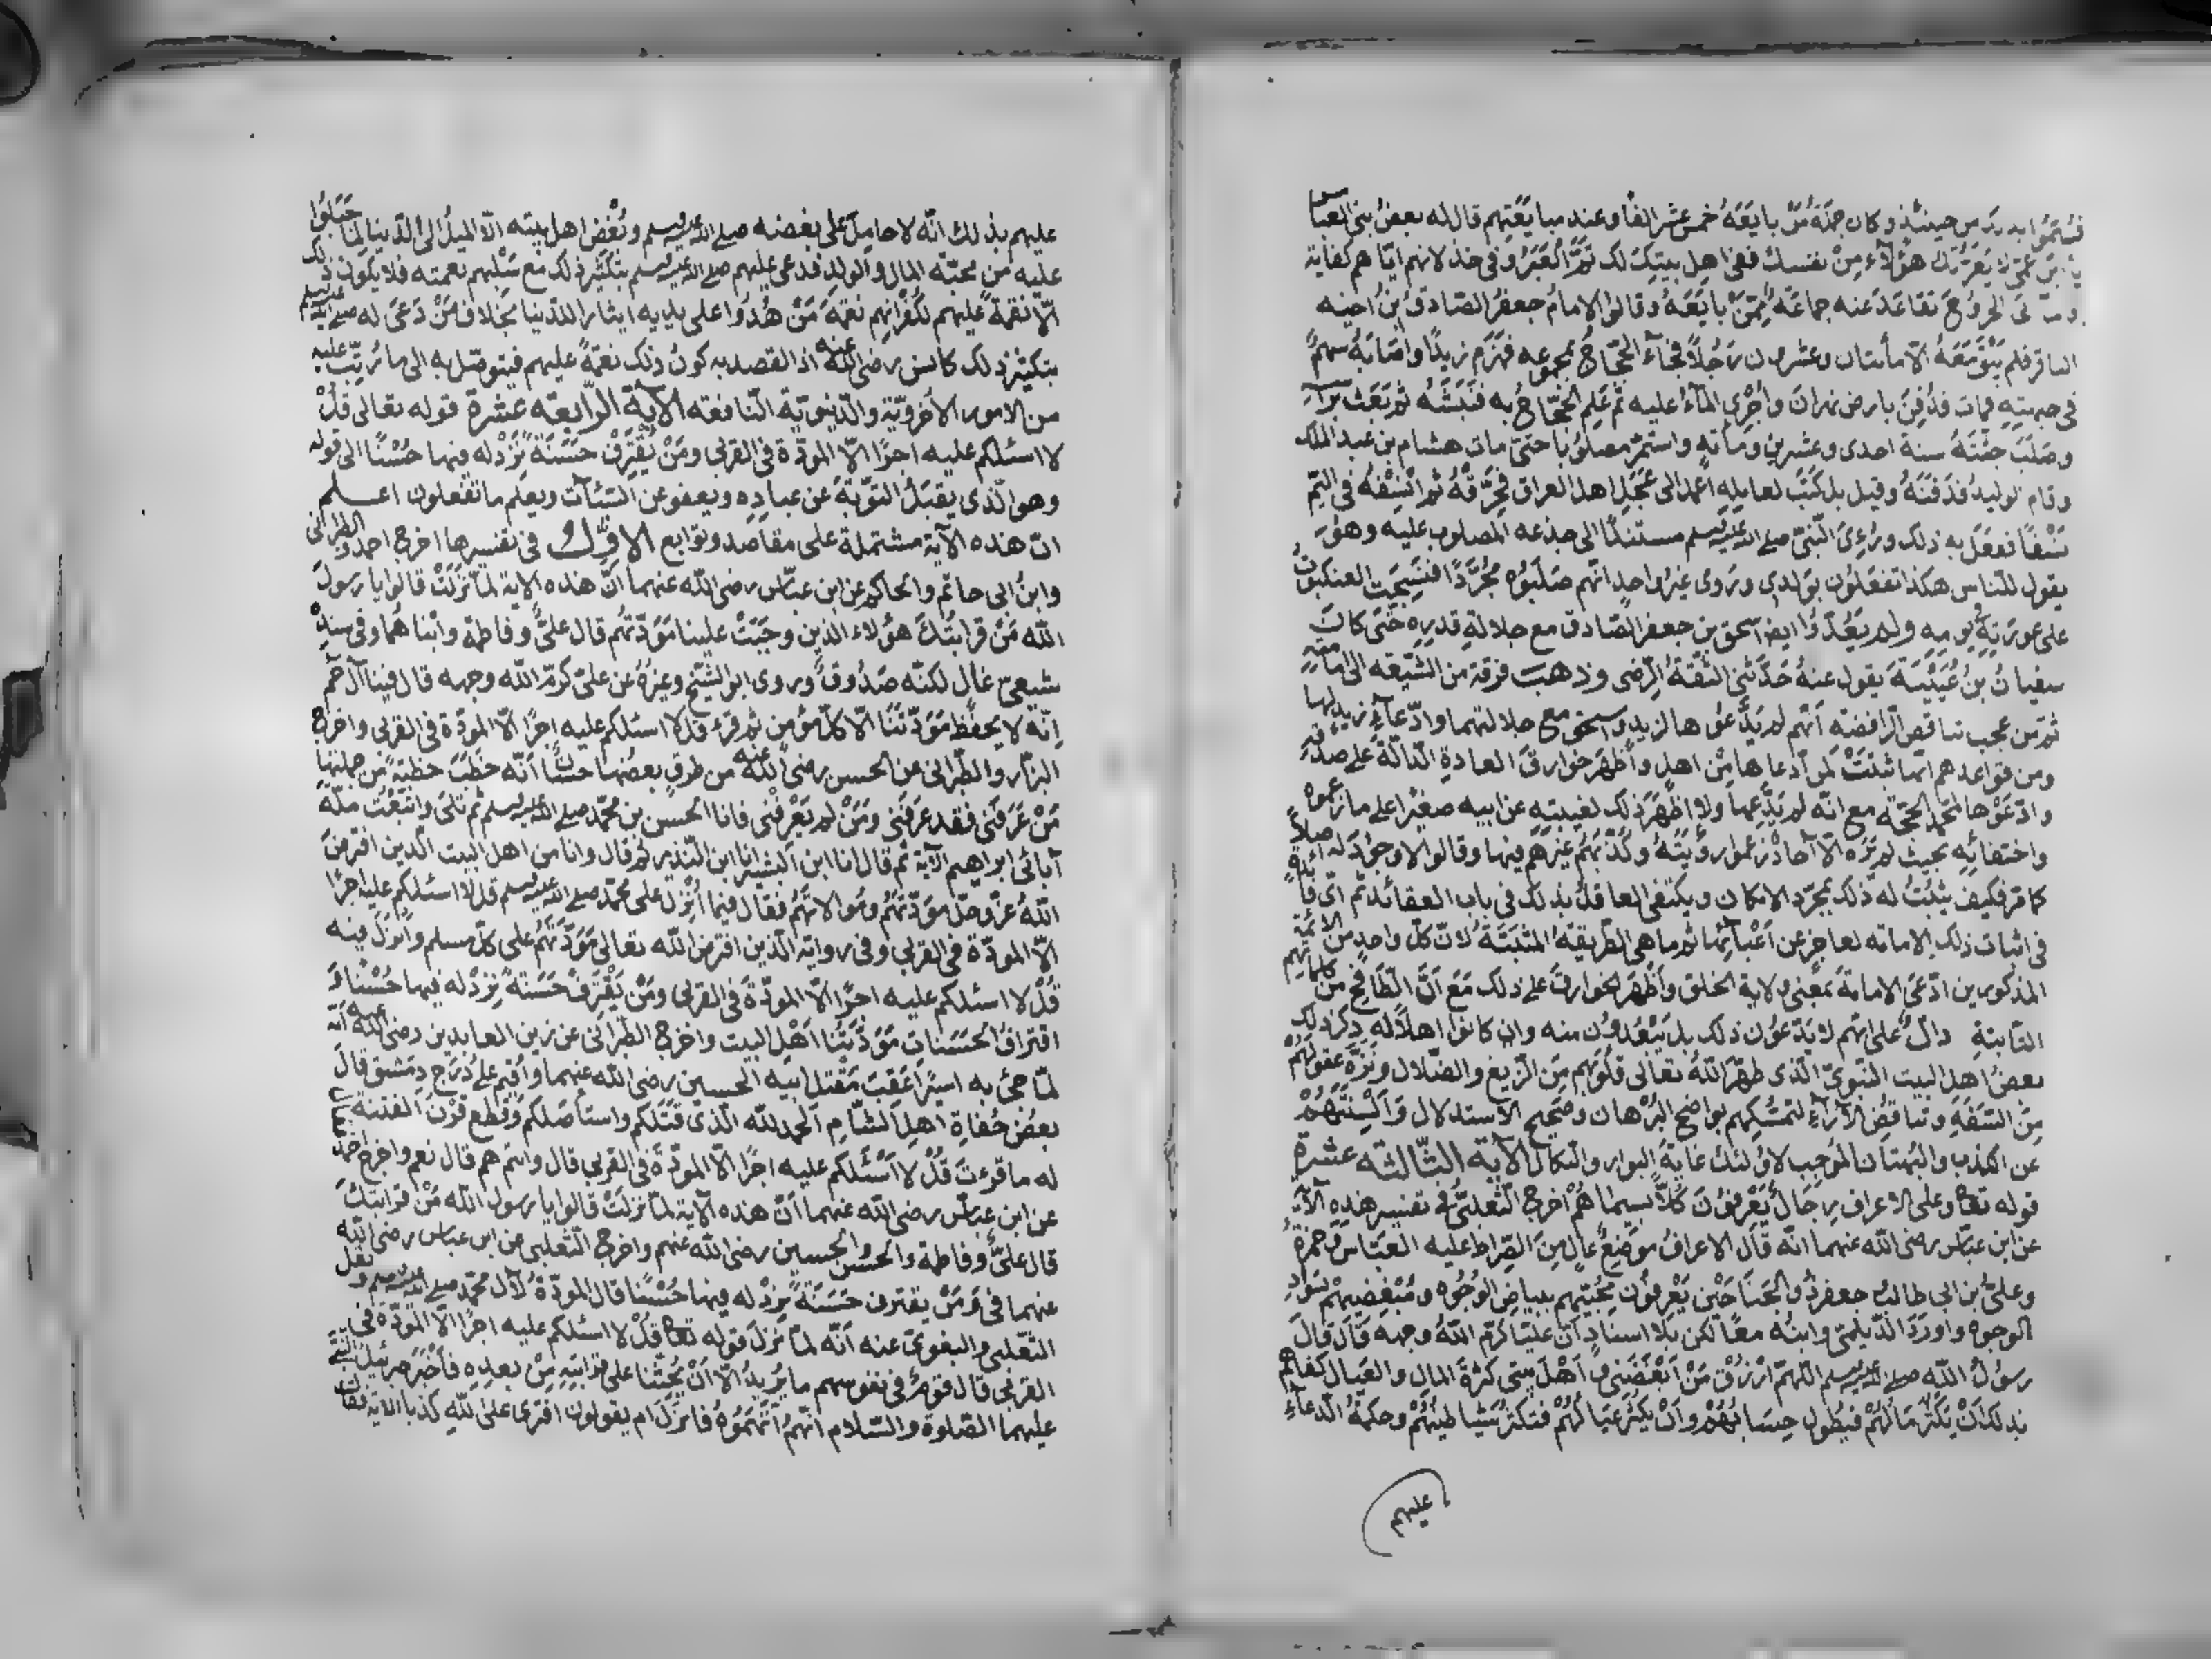 فسُمّوا بذلك من حينئذ وكان جملة من بايَعَهُ خمس عشر الفا وعند مبايَعَتِهم قال له بعضُ بني العباس
يا ابن عمّي لا يَغُرَّنّك هؤلآء مِنْ نفسك ففي اهل بيتِك لك تمّ العِبَرُ وفي خذلانهم ايّاهم كفاية
الخروُجَ تقاعَدَ عنه جماعَة مِمّن بايَعَهُ وقالوا الامامُ جعفرُ الصّادقُ بنُ اخيه
الباقر فلم يَبْقَ مَعَهُ الّا مأتان وعشرون رَجُلاً فجآء الحجّاجُ بجموعه فهزَم زيدًا واصَابَهُ سهمٌ
في جبهتِهِ فمات فدُفِنَ بارض نهران وأُجْرِي المآءُ عليه ثمّ عَلِم الحجّاجُ به فنَبَشَهُ ثم بَعَثَ برأسه
وصَلَبَ جثّتَهُ سنة احدى وعشرين ومأته واستمرّ مصلوُبا حتّى مات هشام بن عبد الملك
وقام الوليدُ فدَفَنَهُ وقيل بل كَتَبَ لعامِلِه اعمد الى عِجْلِ اهل العراق فحَرِّقْهُ ثم انْسِفْهُ في اليَمّ
نَسْفًا ففعَلَ به ذلك ورُءِىَ النّبيّ صلى الله عليه وسلم مستندًا الى جذعه المصلوب عليه وهوَ
يقول للنّاس هكذا تفعَلوُن بوَلدي وروى غيرُ واحدٍ انّهم صَلَبوُه مُجَرَّدًا فنَسَجَتِ العنكبوتُ
على عورَتِهِ في يومِه ولم يَعُدّوُا ايضا اسحق بن جعفر الصّادق مع جلالةِ قدرِهِ حَتّى كان
سفيانُ بنُ عُيَيْنَة يقول عنهُ حَدّثني الثقةُ الرّضى وذهبَت فرقة من الشّيعه الى امامَتِهِ
ثم من عجب تناقض الرّافضه انّهم لم يَدّعوُها لزيد واسحق مع جلالتهما وادّعآءِ زيد لها
ومن قواعدهم انّها تثبُتُ لمن ادعاها مِنْ اهل وأَظهَرَ خوارقَ العادةِ الدّالّةَ على صدقِه
وادّعَوْها لمحمّد الحجّة مع انّه لم يَدّعِها ولا اظْهَرَ ذلك لغيبتِه عن ابيه صغيرًا على ما زعموه
واختفائِه بحيث لم يَرَه الّا آحادٌ زعموا رؤيَتَهُ وكذّبَهُم غيرُهم فيها وقالوا لا وجوُدَ له اصلاً
كما مر فكيف يثبُتُ له ذلك بمجرّد الامكان ويكتفي العاقلُ بذلك في باب العقائد ثم اىّ فائدةٍ
في اثبات ذلك الامامة لعاجزٍ عن اَعْبَآئِها ثم ما هي الطّريقة المثبتَةُ لانّ كلّ واحدٍ من الأئمّة
المذكورين ادّعَى الامامةَ بمعنى ولاية الخلق وأظْهَرَ الخوارقَ على ذلك مَعَ اَنّ الطّافِحَ من كلماتهم
الثّابتةِ دالٌّ على انّهم لا يَدّعوُن ذلك بل يَبْعُدوُن منه وان كانوا اهلاً له ذكَرَ ذلك
بعضُ اهل البيت النّبويّ الذي طهّرَ اللهُ تعالى قلُوبَهم مِنَ الزّيغ والضّلال ونَزّهَ عقولَهُمْ
مِنَ السّفَهِ وتناقُضِ الآرآءِ لتمسّكِهم بواضح البُرْهان وصحيح الاستدلال وَاَلْسِنَتَهُمْ
عن الكذب والبُهتان الموجِب لاوُلئك غايةَ البوار والنّكال الآية الثّالثه عشرة
قوله تعالى وعلى الاعراف رجالٌ يَعْرِفوُنَ كلاًّ بسيماهُمْ اخرج الثّعلبيُّ في تفسير هذهِ الآيةِ
عن ابن عبّاس رضي الله عنهما انّه قال الاعرافُ موَضِعٌ عالٍ مِنَ الصِّراط عليه العبّاسُ وحمزةُ
وعليُّ بن ابي طالب وجعفرٌ ذو الجناحَيْنِ يَعْرِفوُن مُحِبّيهم ببياضِ الوُجوُه ومُبْغِضيهم بسَوادِ
الوجوه واورَدَ الدّيلميّ وابنُه معًا لكن بلا اسنادٍ اَنّ عليّا كرّم اللهُ وجهه قال قال
رسوُلُ الله صلى الله عليه وسلم اللهمّ ارْزُقْ مَنْ اَبْغَضَني واَهْلَ بيتي كثْرَةَ المال والعيال كفاهم
بذلك اَنْ يَكثُرَ مَالُهُمْ فيطُولَ حِسَابُهُمْ واَنْ يكثُرَ عيالُهُمْ فتكثُرَ شياطينُهُمْ وحكمةُ الدّعآءِ
عليهم
عليهم بذلك انّه لا حامِلَ على بغضه صلى الله عليه وسلم وبُغْضِ اهل بيته الّا الميلُ الى الدّنيا لِما جُبلوُا
عليه من محبّة المال والولد فدعى عليهم صلى الله عليه وسلم بتكثير ذلك مع سَلْبهم نعمته فلا يكون ذلك
الّا نقمةً عليهم لكُفْرانِهم نعمَة مَنْ هُدُوا على يديه ايثارا للدّنيا بخلاف مَنْ دَعَى له صلى الله عليه وسلم
بتكثير ذلك كانس رضي الله عنه اذ القصد به كونُ ذلك نعمةً عليهم فيتوصّل به الى ما رُتّبَ عليه
من الامور الاخرويّة والدّنيويّة النّافعه الآية الرّابعة عشرة قوله تعالى قُلْ
لا اسئلكم عليه اجرًا الّا المودّة في القربى ومَنْ يَقْتَرِفْ حَسَنَةً نَزِدْ له فيها حُسْنًا الى قوله
وهو الّذي يقبَلُ التّوبَةَ عن عبادِه ويعفو عن السّيّآت ويعلَم ما تفعلون اعلم
انّ هذه الآية مشتملة على مقاصد وتوابع الاوّل في تفسيرها اخرج احمد والطبرانى
وابنُ ابي حاتم والحاكم عن ابن عبّاس رضي الله عنهما انّ هذه الآية لمّا نزَلَتْ قالوا يا رسولَ
الله مَنْ قرابَتُكَ هؤلاء الذين وجَبَتْ علينا مَوَدّتُهم قال عليٌّ وفاطمة وابناهُما وفي سندِه
شيعيّ غالٍ لكنّه صَدُوقٌ وروى ابو الشّيخ وغيرُهُ عن عليّ كرّم الله وجهه قال فينا آل حم
اِنّه لا يحفَظ مَوَدّتَنَا الّا كلّ مؤمن ثم قرء قل لا اسئلكم عليه اجرًا الّا المودّة في القربى واخرج
البزّار والطّبراني عن الحسن رضي الله عنه من طرقٍ بعضُها حسانٌ اَنّه خطَبَ خطبةً من جملتِها
مَنْ عَرَفَني فقد عَرَفَني ومَنْ لم يَعْرِفْني فانا الحسن بن محمّد صلى الله عليه وسلم ثم تلَى واتّبَعْتُ ملّة
آبائي ابراهيم الآية ثم قال انا ابن البشير انا ابن النّذير ثم قال وانا من اهل البيت الّذين افترضَ
اللهُ عزّ وجلّ موَدّتَهُم وموالاتَهُم فقال فيما اُنْزِلَ على محمّد صلى الله عليه وسلم قل لا اسئلكم عليه اجرًا
الّا المودّة في القربى وفي رواية الّذين افترض الله تعالى مَوَدّتَهُم على كلّ مسلم واَنْزَلَ فيه
قُلْ لا اسئلكم عليه اجرًا الّا المودّة في القربى ومَنْ يَقْتَرِفْ حَسَنةً نزِدْ له فيها حُسْنًا وَ
اقترافُ الحسَنات مَوَدّتُنا اَهْلَ البيت واخرج الطّبراني عن زين العابدين رضي الله عنه انّه
لمّا جئ به اسيرًا عَقِبَ مَقْتلِ ابيه الحسين رضي الله عنهما واُقيم على دُرَج دِمَشق قال
بعضُ جُفاةِ اهل الشّام الحمد لله الّذي قتَلكم واستأصَلكم وقطع قَرْنَ الفتنة
له ما قرءتَ قُلْ لا اَسْئَلكم عليه اجرًا الّا المودّةَ في القربى قال وانتم هم قال نعم واخرج احمد
عن ابن عبّاس رضي الله عنهما اَنّ هذه الآية لمّا نزلَتْ قالوا يا رسول الله مَنْ قرابتك
قال عليٌّ وفاطمة والحسن والحسين رضي الله عنهم واخرج الثّعلبي عن ابن عباس رضي الله
عنهما في وَمَنْ يقترف حَسَنَةً نزِدْ له فيها حُسْنًا قال المودّةُ لآل محمّد صلى الله عليه وسلم ونقل
الثّعلبي والبغويّ عنه اَنّه لمّا نزلَ قوله تعالى قلْ لا اسئلكم عليه اجرًا الّا المودّة في
القربى قال قومٌ في نفوسهم ما يُريدُ الّا اَنْ يُحِثّنا على قرابَتِه مِنْ بعدِه فأخبَرَ جبرئيلُ النبىّ
عليهما الصّلوة والسّلام اَنّهمُ اتّهَمُوهُ فانزلَ ام يقولون افترى على اللهِ كذبا الاية فقال